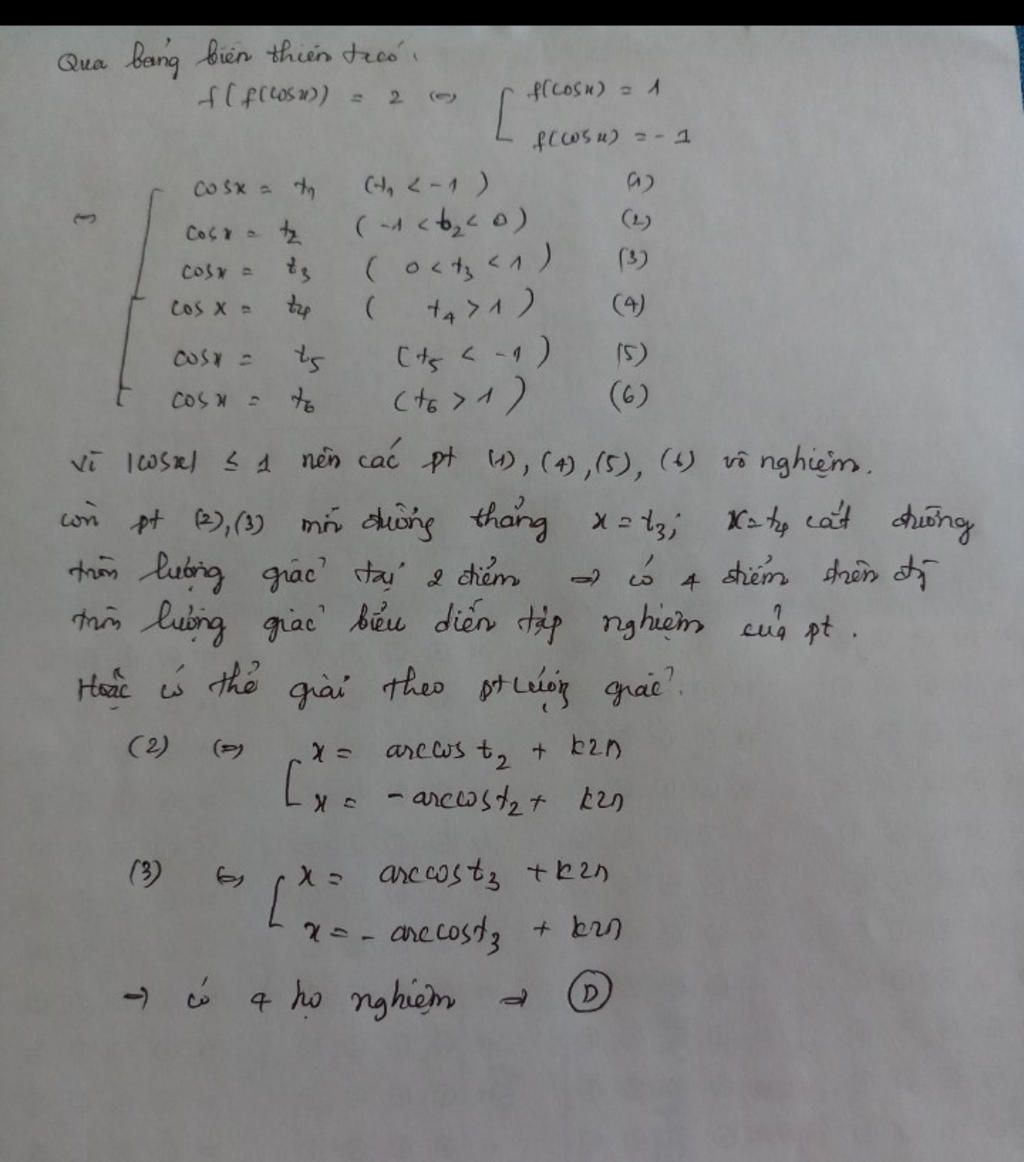 Qua bảng biến thiên ta có:
f(f(cosx)) = 2 ⇔ [ f(cosx) = 1
f(cosx) = -1
⇔ [ cosx = t₁ (t₁ < -1) (1)
cosx = t₂ (-1 < t₂ < 0) (2)
cosx = t₃ (0 < t₃ < 1) (3)
cosx = t₄ (t₄ > 1) (4)
cosx = t₅ (t₅ < -1) (5)
cosx = t₆ (t₆ > 1) (6)
Vì |cosx| ≤ 1 nên các pt (1), (4), (5), (6) vô nghiệm.
còn pt (2), (3) mỗi đường thẳng x = t₃; x = t₄ cắt đường
tròn lượng giác tại 2 điểm ⇒ có 4 điểm trên đg
tròn lượng giác biểu diễn tập nghiệm của pt.
Hoặc có thể giải theo pt lượng giác.
(2) ⇔ [ x = arccos t₂ + k2π
x = - arccos t₂ + k2π
(3) ⇔ [ x = arccos t₃ + k2π
x = - arccos t₃ + k2π
→ có 4 họ nghiệm ⇒ D